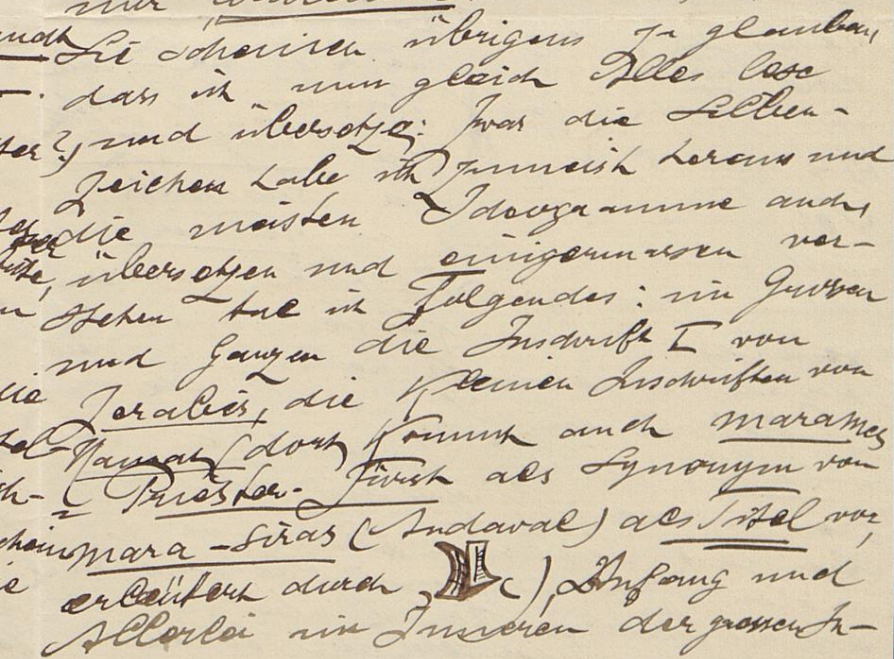 Sie scheinen übrigens zu glauben,
dass ich nun gleich Alles lese
und übersetze: Zwar die Silben-
zeichen habe ich zumeist heraus und
die meisten Ideogramme auch,
übersetzen und einigermassen ver-
stehen tue ich Folgendes: im Grossen
und Ganzen die Inschrift I von
Jerabis, die kleinen Inschriften von
Hamat (dort kommt auch marames
= Priester-Fürst als Synonym von
mara-siras (Andaval) als Titel vor,
erläutert durch ), Anfang und
Allerlei im Inneren der grossen In-